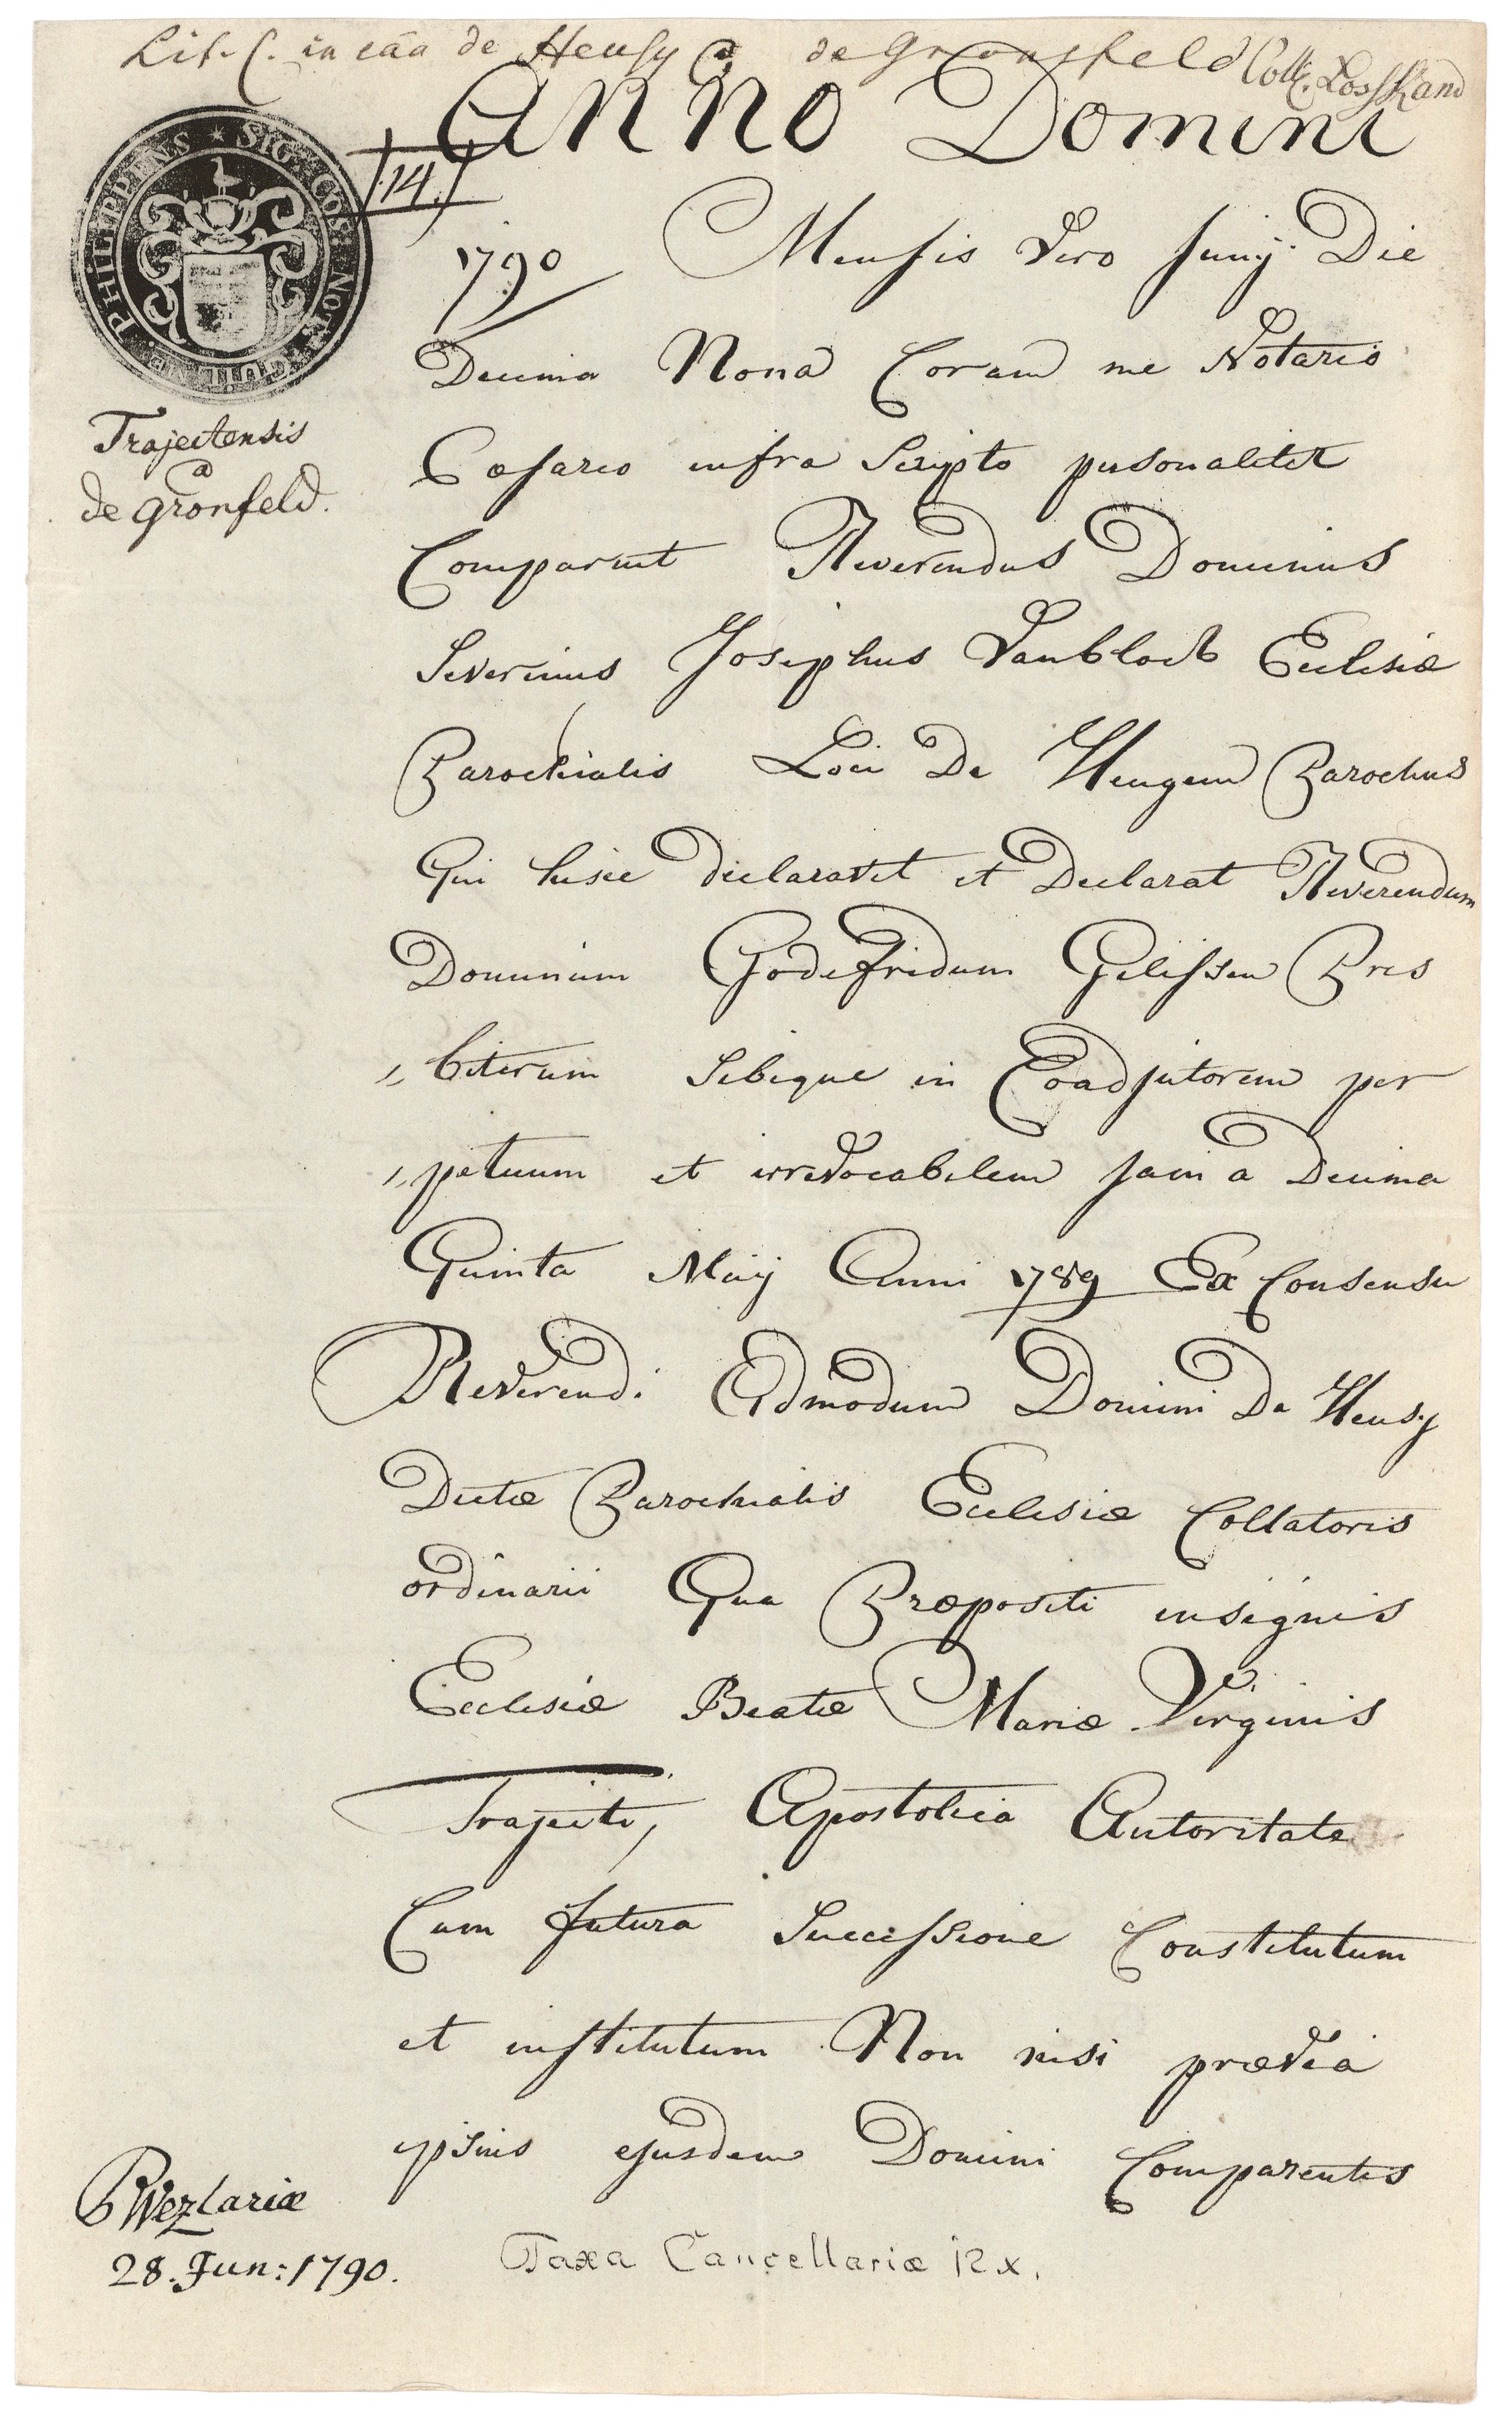 Lit. C. in cãa de Heusy Ca de Gronsfeld Coll.
Anno Domini
/14./
SIG: COS: NOT: GUILME: PHILIPPENS
1790 Mensis Vero Junij Die
Decima Nona Coram me Notario
Trajectensis
Cæsareo infra Scripto personaliter
Ca
de Gronfeld.
Comparuit Reverendus Dominus
Severinus Josephus Vanblock Ecclesiæ
Parochialis Loci De Heugem Parochus
Qui hisce declaravit et Declarat Reverendum
Dominum Godefridum Gelissen Pres
„ biterum Sibique in Coadjutorem per
„ petuum et irrevocabilem jam a Decima
Quinta Maij Anni 1789 Ex Consensu
Reverendi Admodum Domini De Heusy
Dictæ Parochialis Ecclesiæ Collatoris
ordinarii Qua Præpositi insignis
Ecclesiæ Beatæ Mariæ Virginis
Trajecti, Apostolica Autoritate
Cum futura Successione Constitutum
et institutum Non nisi prævia
ipsius ejusdem Domini Comparentis
P Wezlariæ
28. Jun: 1790.
Taxa Cancellariæ 12 x.